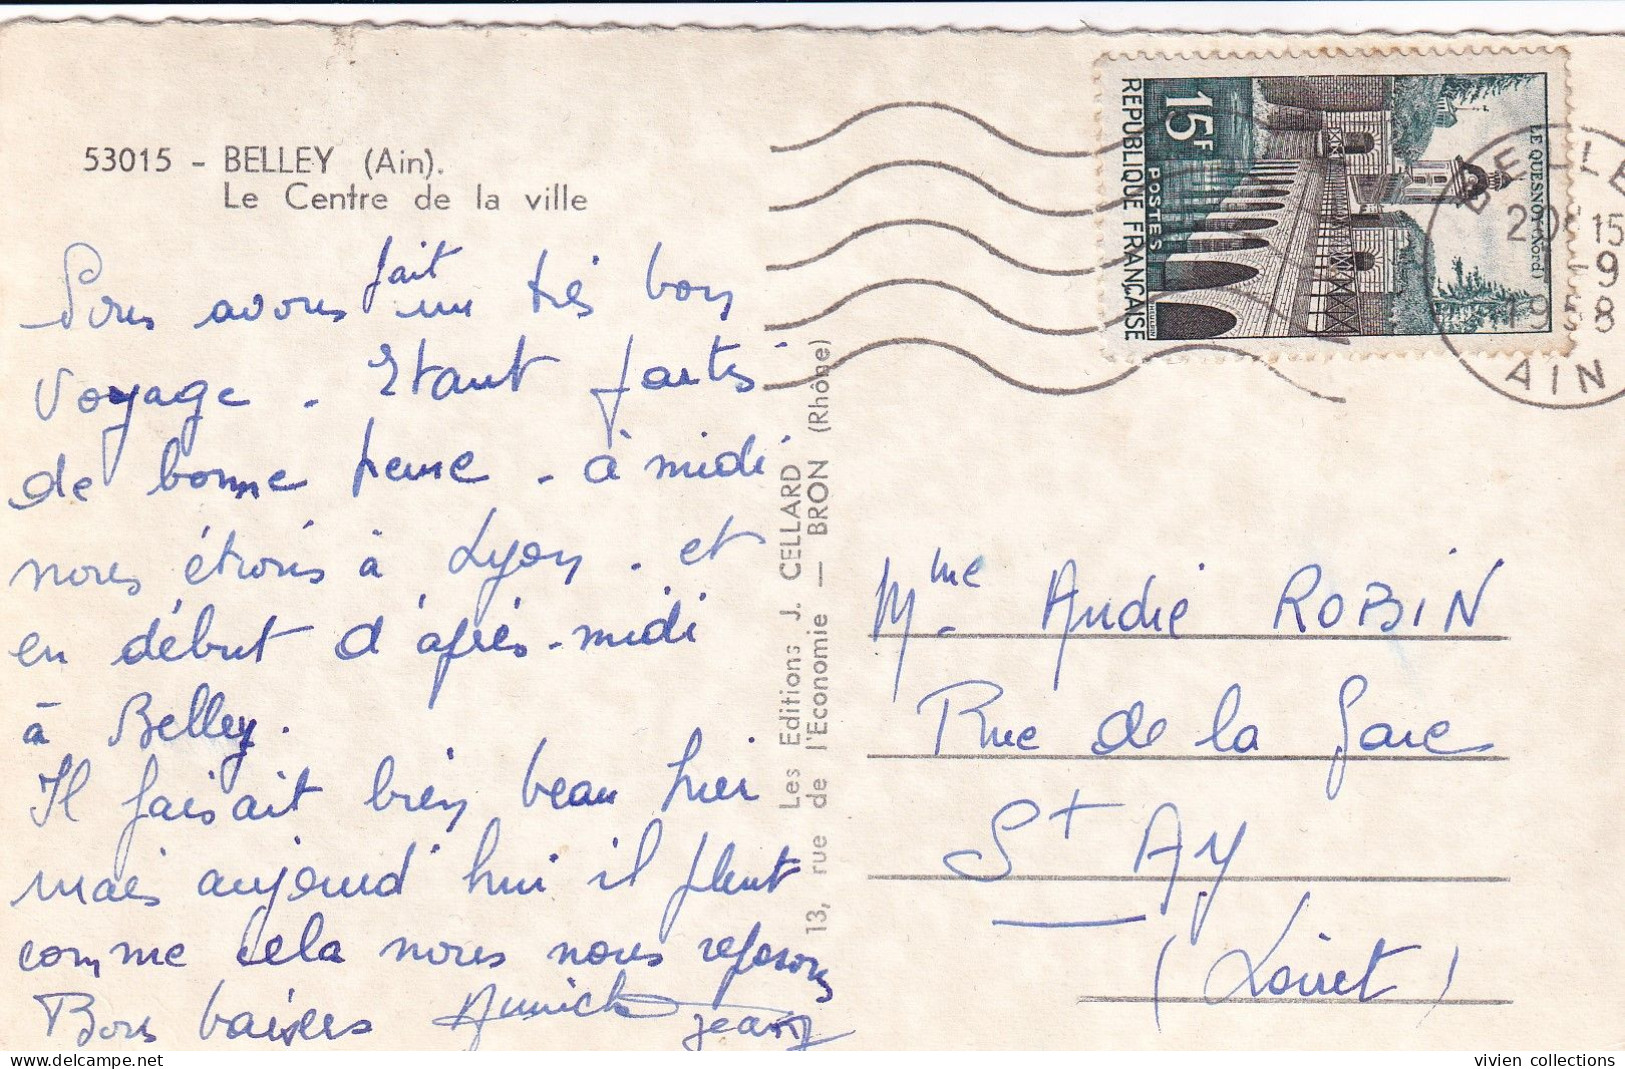 53015 - BELLEY (Ain).
Le Centre de la ville
Nous avons fait un très bon
voyage. Etant partis
de bonne heure - à midi
nous étions à Lyon. et
en début d'après-midi
à Belley.
Il faisait bien beau hier
mais aujourd'hui il pleut
comme cela nous nous reposons
Bons baisers Annick Jean
Les Editions J. CELLARD
13, rue de l'Economie — BRON (Rhône)
15F
POSTES
REPUBLIQUE FRANÇAISE
LE QUESNOY (Nord)
BELLE
20 15
9
19 8
AIN
Mme André ROBIN
Rue de la Gare
St AY
(Loiret)
vivien collections